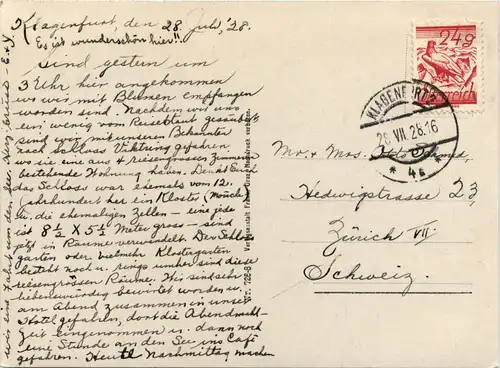 Klagenfurt, den 28. Juli, '28.
Es ist wunderschön hier!!
sind gestern um
3 Uhr hier angekommen
wo wir mit Blumen empfangen
worden sind. Nachdem wir uns
ein wenig vom Reisestaub gesäubert
sind wir mit unseren Bekannten
ins Schloss Viktring gefahren,
wo sie eine aus 4 riesengrossen Zimmern
bestehende Wohnung haben. Denkt Euch
das Schloss war ehemals vom 12.
Jahrhundert her ein Kloster (Mönche)
u. die ehemaligen Zellen - eine jede
ist 8 ½ X 5 ½ Meter gross - sind
jetzt in Räume verwandelt. Der Schloss-
garten oder vielmehr Klostergarten
besteht noch u. rings umher sind diese
riesengrössen Räume. Wir sind sehr
liebenswürdig bewirtet worden u.
am Abend zusammen in unser
Hotel gefahren, dort die Abendmahl-
zeit eingenommen u. dann noch
eine Stunde an den See ins Café
gefahren. Heute Nachmittag machen
wir eine Fahrt um den See.
24g
KLAGENFURT
28.VII.28.16
* 4a *
Mr. + Mrs.
Hedwigstrasse 23,
Zürich VII.
Schweiz.
Nr. 728-8